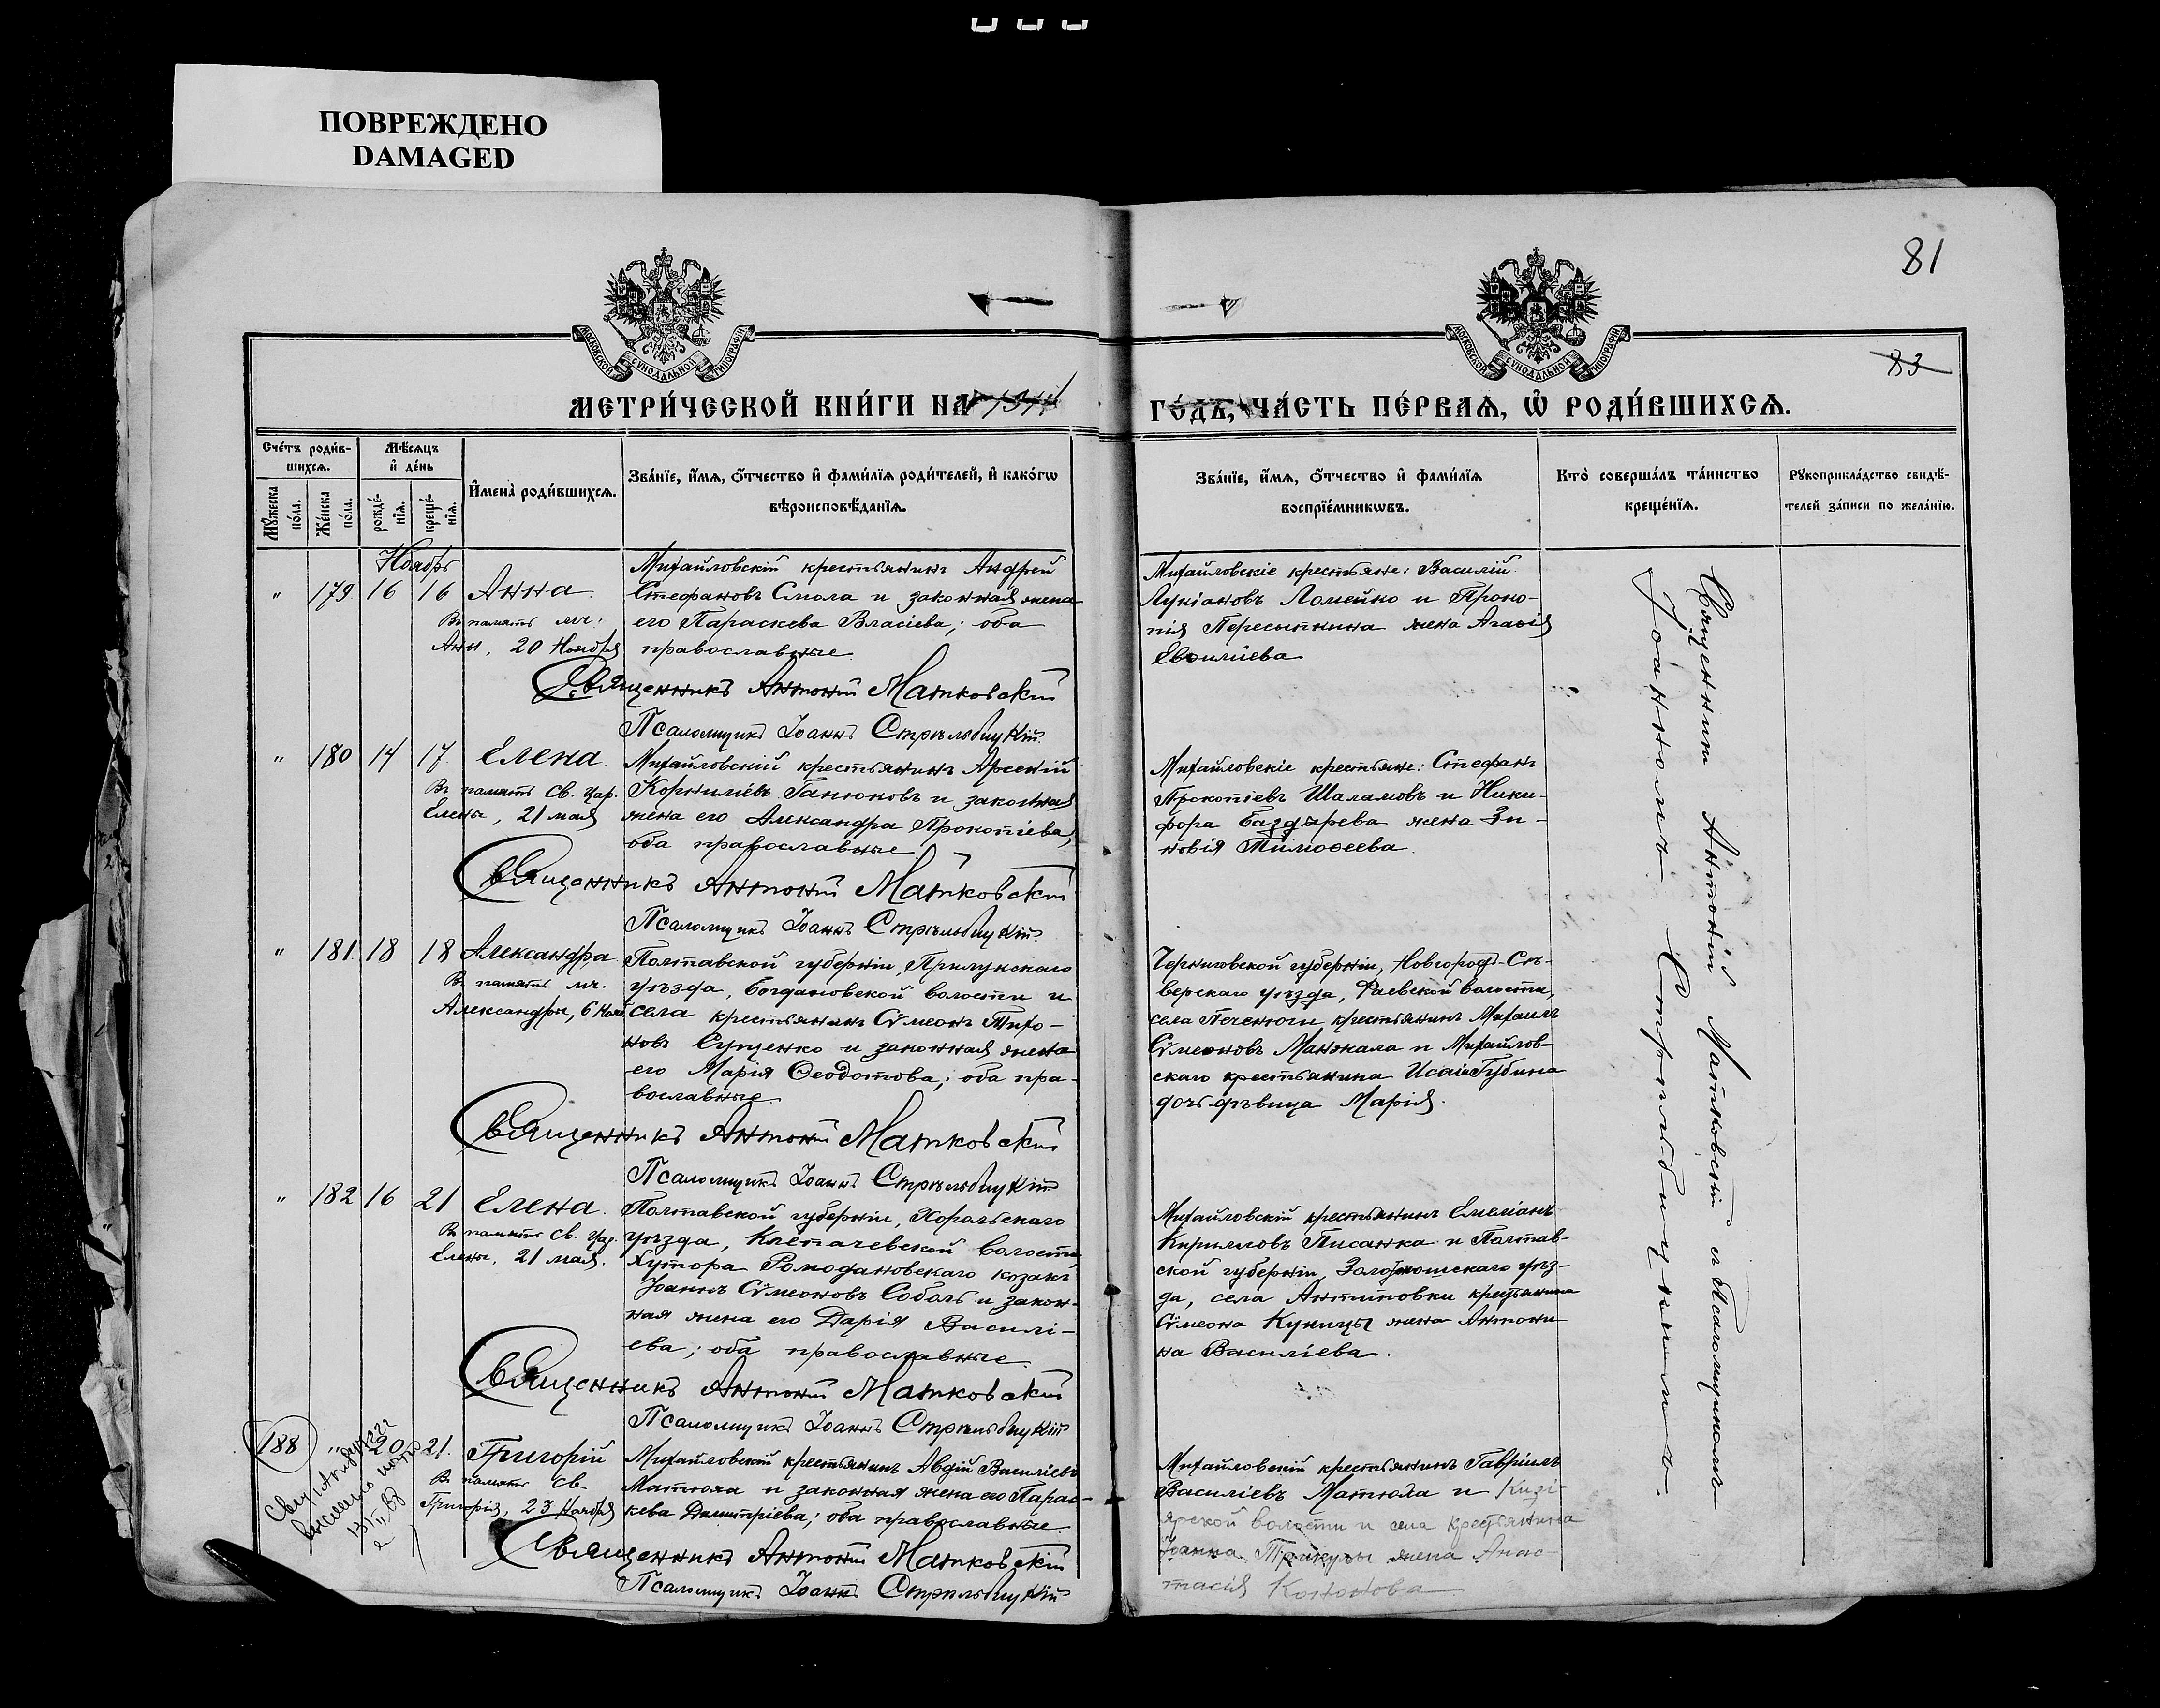 ПОВРЕЖДЕНО
DAMAGED
81
83
МОСКОВСКОЙ СѴНОДАЛЬНОЙ ТИПОГРАФІИ
МОСКОВСКОЙ СѴНОДАЛЬНОЙ ТИПОГРАФІИ
МЕТРИ́ЧЕСКОЙ КНИ́ГИ НА 1914
ГО́ДЪ, ЧА́СТЬ ПЕ́РВАѦ, Ѡ҆ РОДИ́ВШИХСѦ.
Сче́тъ роди́в-
шихсѧ.
Мѣ́сѧцъ
и҆ де́нь
Мꙋ́жеска по́ла.
Же́нска по́ла.
рожде́-
нїѧ.
креще́-
нїѧ.
И҆мена̀ роди́вшихсѧ.
Зва́нїе, и҆́мѧ, ѻ҆́тчество и҆ фами́лїѧ роди́телей, и҆ како́гѡ
вѣроисповѣ́данїѧ.
Зва́нїе, и҆́мѧ, ѻ҆́тчество и҆ фами́лїѧ
воспрїе́мникѡвъ.
Кто̀ соверша́лъ та́инство
креще́нїѧ.
Рꙋкоприкла́дство свидѣ́-
телей за́писи по жела́нїю.
Ноябрь
" 179. 16 16 Анна.
Въ память мч.
Анн, 20 Ноября
Михайловскій крестьянинъ Андрей
Стефановъ Смола и законная жена
его Параскева Власіева; оба
православные.
Священникъ Антоній Матковскій
Псаломщикъ Іоаннъ Стрѣльбицкій.
Михайловскіе крестьяне: Василій
Лукіановъ Ломейко и Проко-
пія Пересыпкина жена Агаѳія
Евѳиміева
" 180 14 17. Елена.
Въ память св. цар.
Елены, 21 мая
Михайловскій крестьянинъ Арсеній
Корниліевъ Ганюковъ и законная
жена его Александра Прокопіева,
оба православные
Священникъ Антоній Матковскій
Псаломщикъ Іоаннъ Стрѣльбицкій.
Михайловскіе крестьяне: Стефанъ
Прокопіевъ Шаламовъ и Ники-
фора Баздырева жена Зи-
новія Тимоѳеева.
" 181. 18 18 Александра.
Въ память мч.
Александры, 6 Нояб.
Полтавской губерніи, Прилукскаго
уѣзда, Богдановской волости и
села крестьянинъ Сѵмеонъ Тихо-
новъ Сущенко и законная жена
его Марія Ѳеодотова; оба пра-
вославные.
Священникъ Антоній Матковскій
Псаломщикъ Іоаннъ Стрѣльбицкій
Черниговской губерніи, Новгородъ-Сѣ-
верскаго уѣзда, Раевской волости,
села Печенюги крестьянинъ Михаилъ
Сѵмеоновъ Манжала и Михайлов-
скаго крестьянина Исаіи Губина
дочь дѣвица Марія.
" 182 16 21 Елена.
Въ память св. цар.
Елены, 21 мая.
Полтавской губерніи, Хорольскаго
уѣзда, волости
хутора Ромодановскаго козакъ
Іоаннъ Сѵмеоновъ Соболь и закон-
ная жена его Дарія Василі-
ева; оба православные.
Священникъ Антоній Матковскій
Псаломщикъ Іоаннъ Стрѣльбицкій
Михайловскій крестьянинъ Емеліанъ
Кирилловъ Писанка и Полтав-
ской губерніи, Золотоношскаго уѣз-
да, села Антиповки крестьянина
Сѵмеона Куницы жена Антони-
на Василіева.
188 " 20 21. Григорій
Въ память св.
Григорія, 23 Ноября
Михайловскій крестьянинъ Авдій Василіевъ
Матюха и законная жена его Парас-
кева Димитріева; оба православные
Священникъ Антоній Матковскій
Псаломщикъ Іоаннъ Стрѣльбицкій
Михайловскій крестьянинъ Гавріилъ
Василіевъ Матюха и Кизі-
ярской волости и села крестьянина
Іоанна жена Анас-
тасія Кононова
Священникъ Антоній Матковскій съ Псаломщикомъ
Іоанномъ Стрѣльбицкимъ.